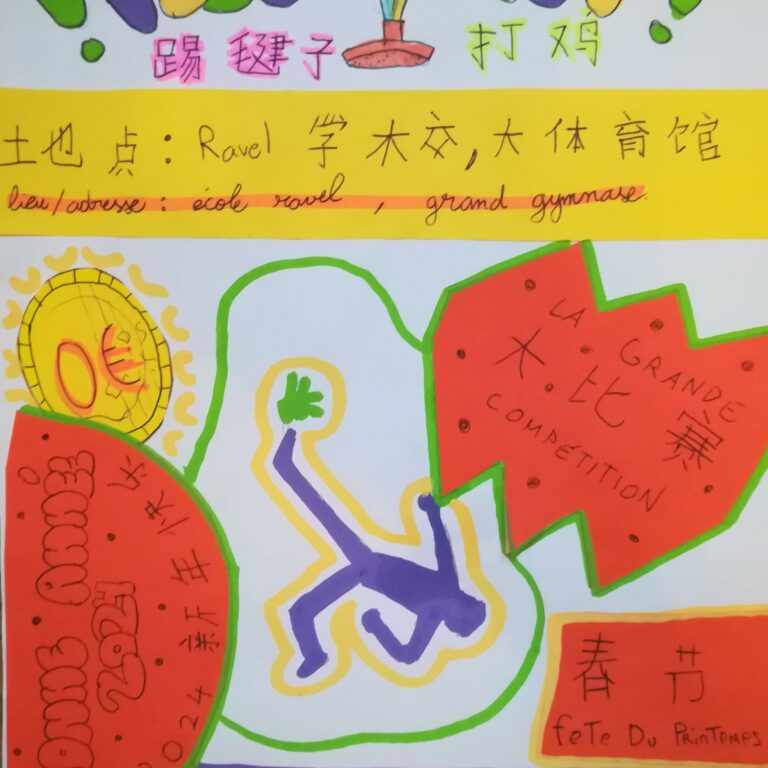 踢毽子
打鸡
地点:Ravel 学校,大体育馆
lieu/adresse : école ravel , grand gymnase.
0€
LA GRANDE
大比赛
COMPÉTITION
ONNE ANNÉE
2024
2024 新年快乐
春节
feTe Du PrinTemps